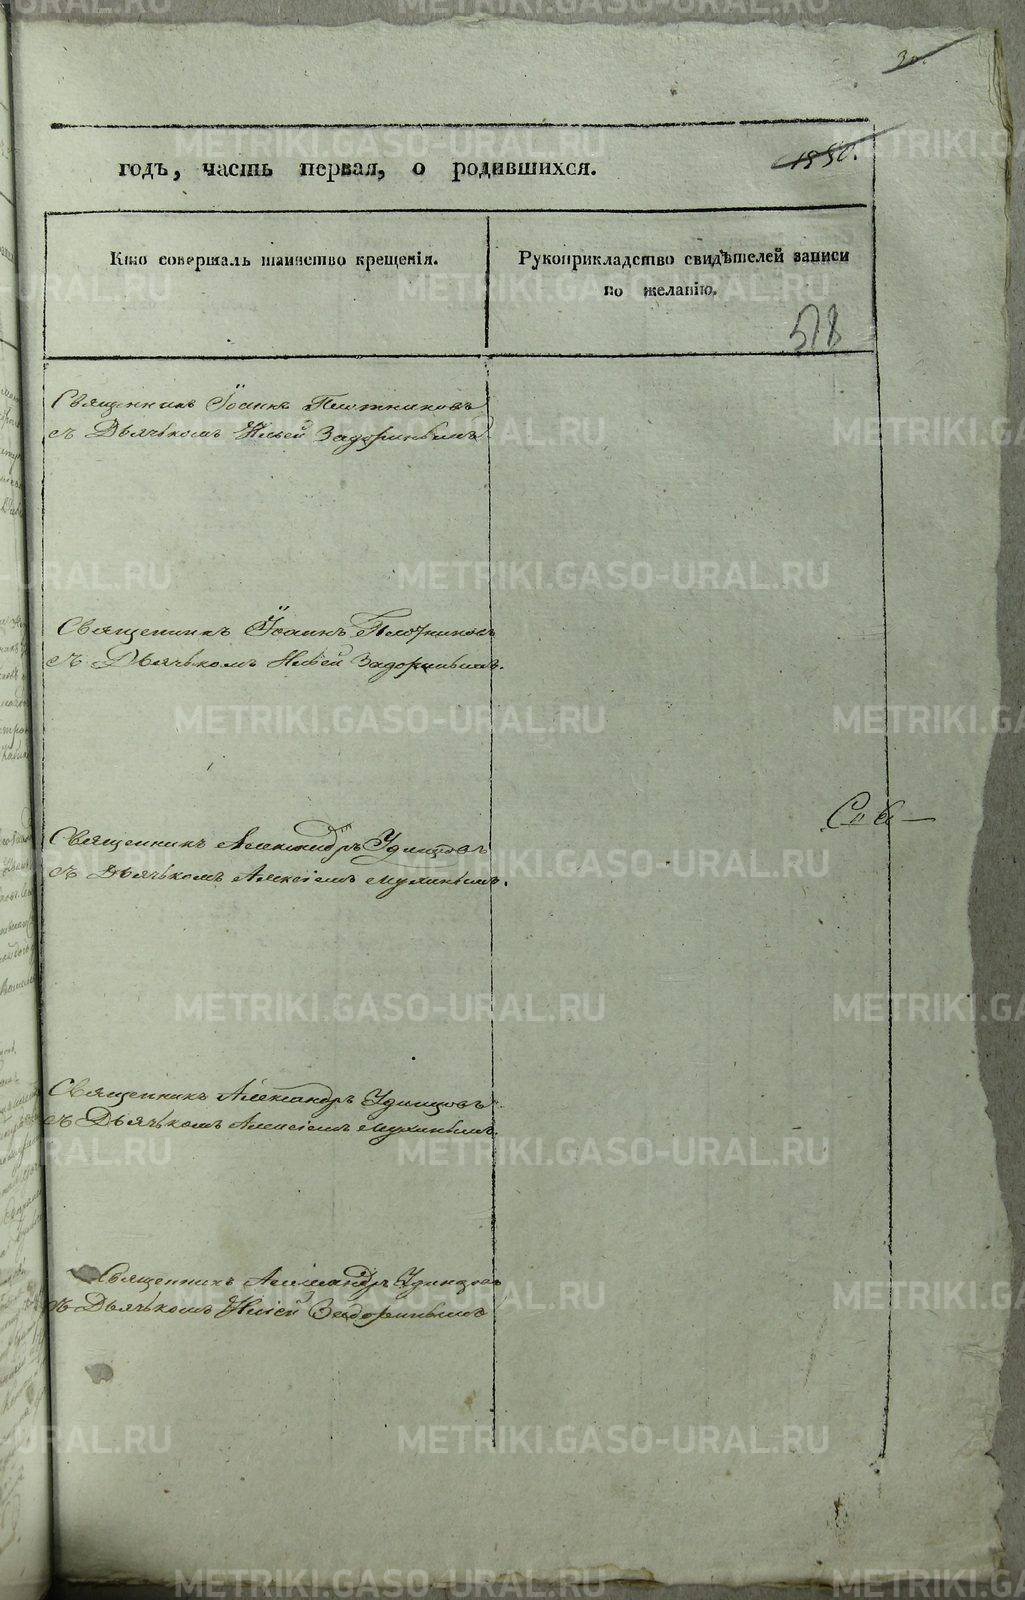 30.
1850.
годъ, часть первая, о родившихся.
Кто совершалъ таинство крещенія.
Рукоприкладство свидѣтелей записи
по желанію.
518
Священникъ Іоаннъ Плотниковъ
съ Дьячькомъ Ильей Задоринымъ
Священникъ Іоаннъ Плотниковъ
съ Дьячькомъ Ильей Задоринымъ.
Священникъ Александръ Удинцовъ
съ Дьячькомъ Алексіемъ Мухинымъ.
Священникъ Александръ Удинцовъ
съ Дьячькомъ Алексіемъ Мухинымъ.
Священникъ Александръ Удинцовъ
съ Дьячькомъ Иліей Задоринымъ
METRIKI.GASO-URAL.RU